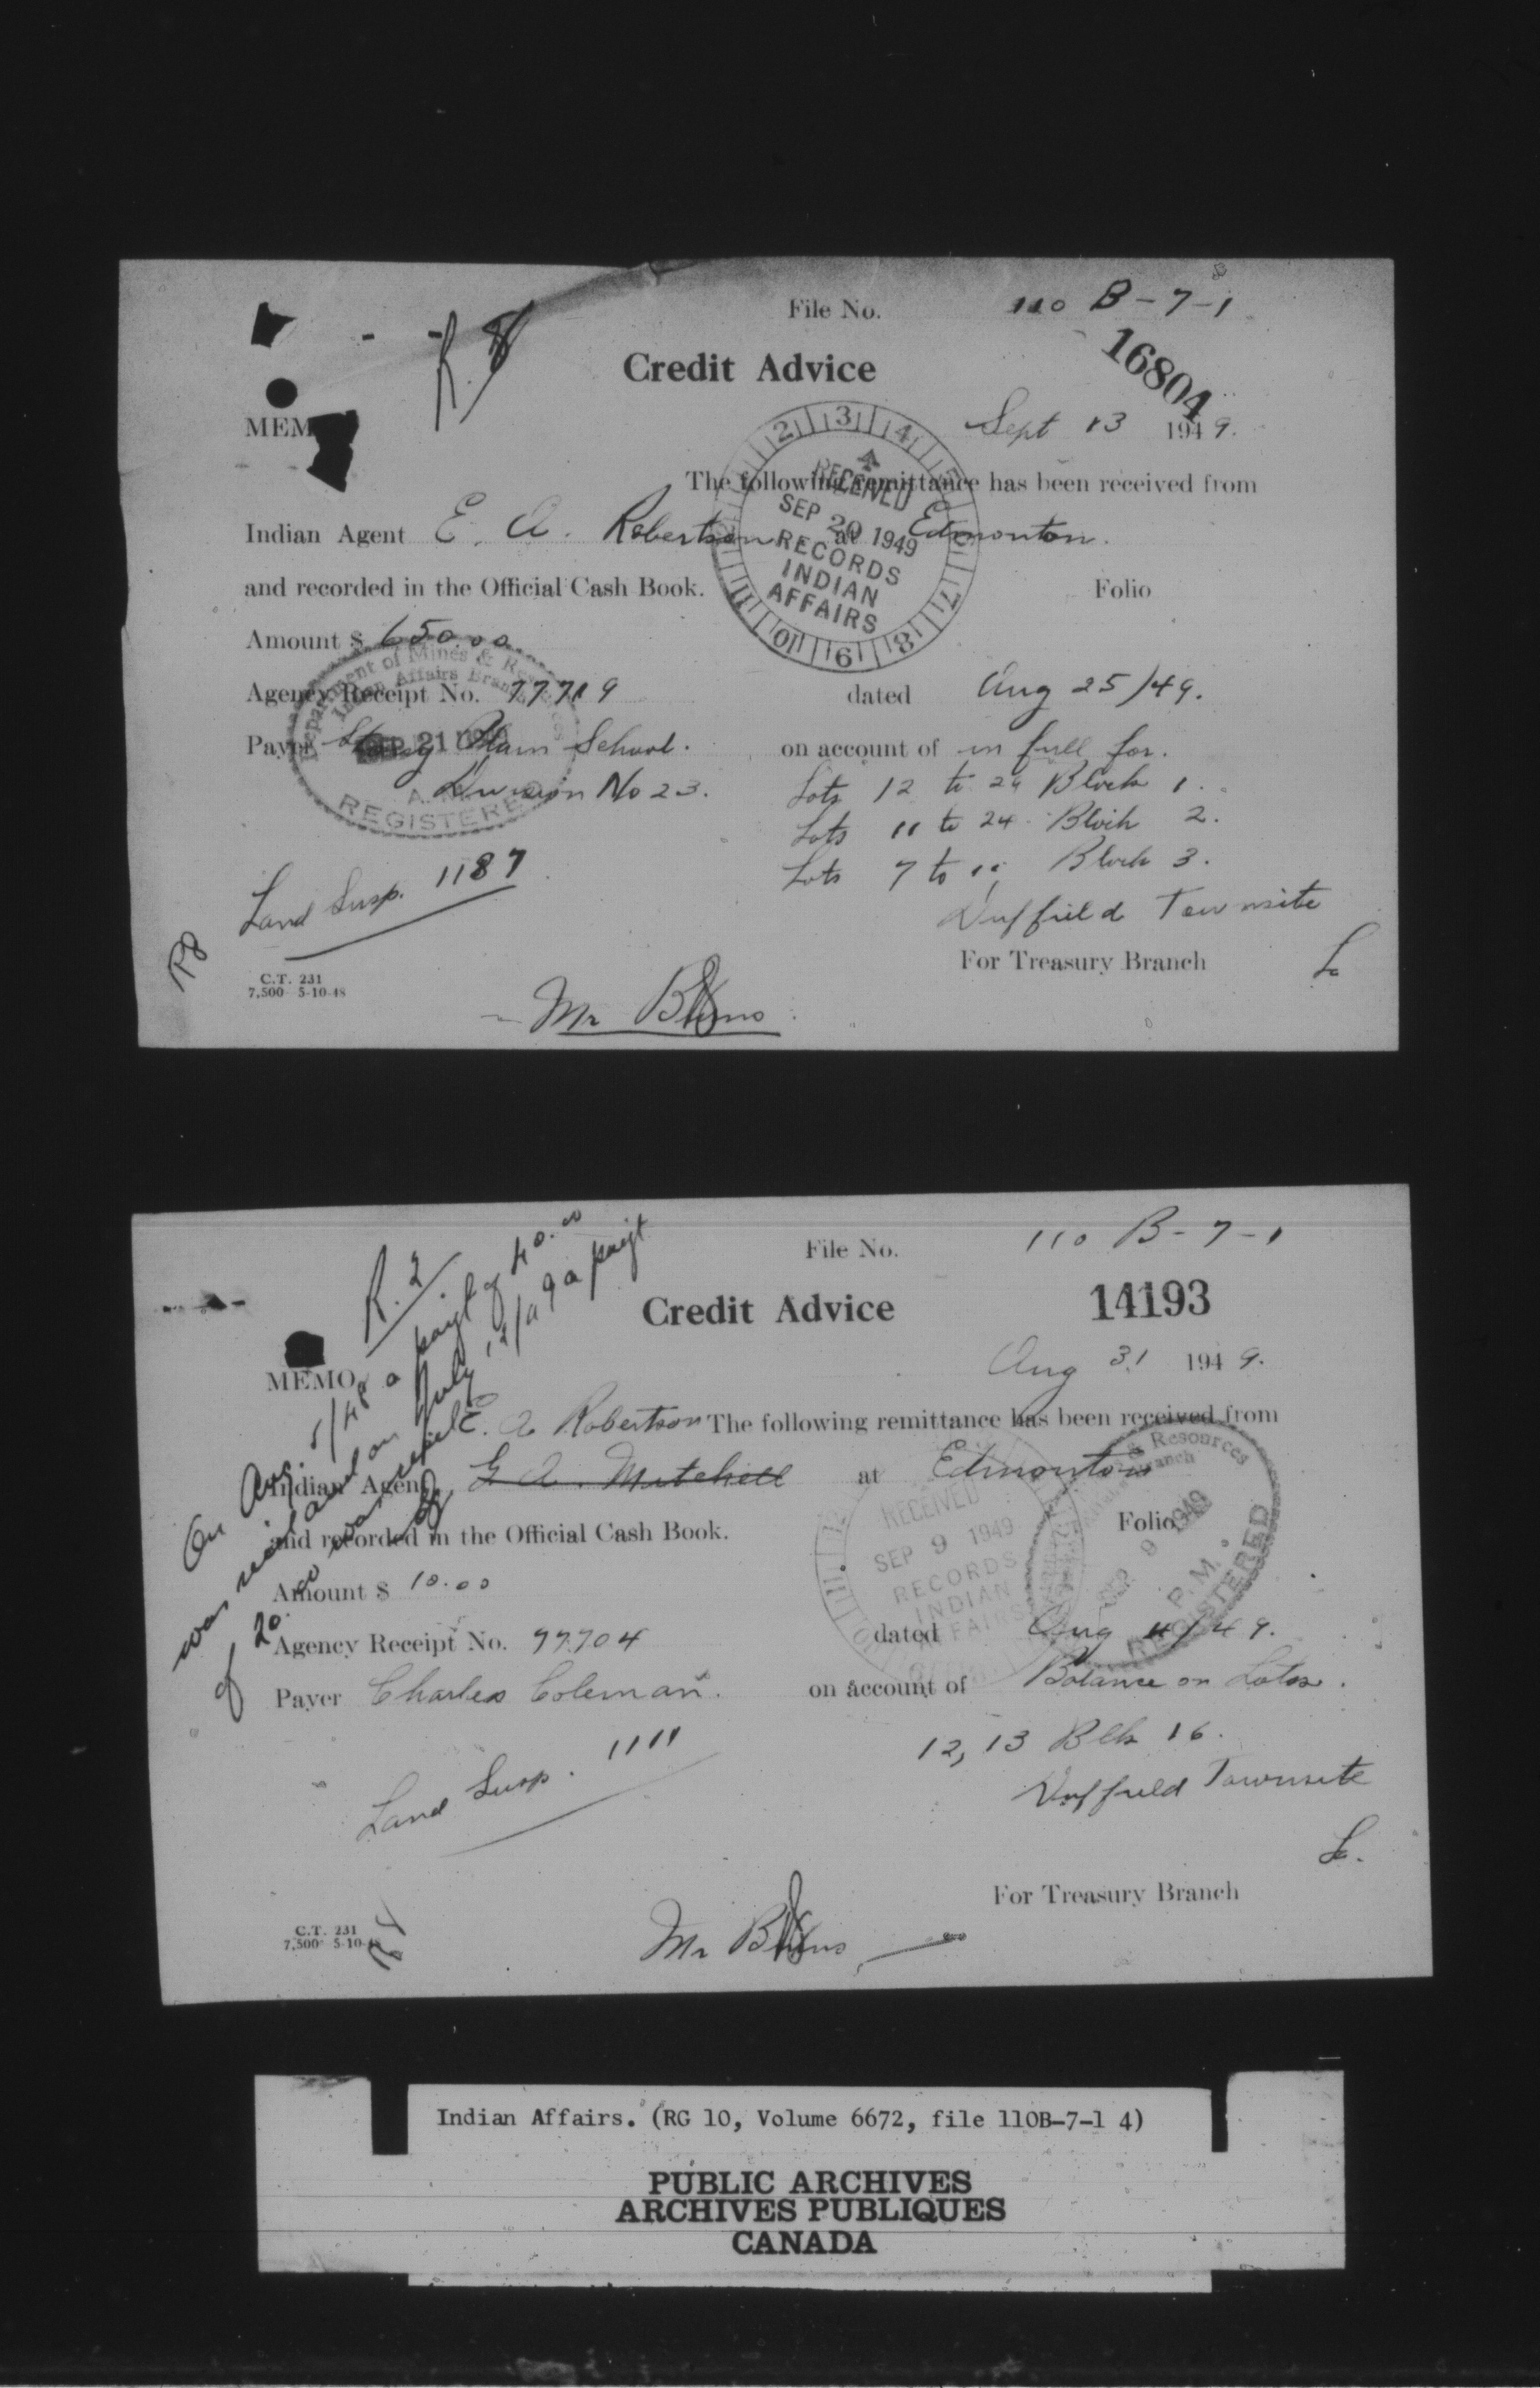 File No. 110 B-7-1
16804
R. 8
Credit Advice
MEM
Sept 13 1949.
The following remittance has been received from
Indian Agent E. A. Robertson at Edmonton.
and recorded in the Official Cash Book. Folio
RECEIVED
SEP 20 1949
RECORDS
INDIAN
AFFAIRS
Amount $ 650.00
Agency Receipt No. 77719 dated Aug 25/49.
Payer Stony Plain School. on account of in full for.
Division No 23. Lots 12 to 24 Block 1.
Lots 11 to 24 Block 2.
Lots 7 to Block 3.
Duffield Townsite
Department of Mines & Resources
Indian Affairs Branch
SEP 21 1949
A.M.
REGISTERED
Land Susp. 1187
For Treasury Branch
C.T. 231
7,500 5-10-48
Mr
File No. 110 B-7-1
14193
R. 2
Credit Advice
MEMO
Aug 31 1949.
On Aug. 5/48 a payt of 40.00
was rec'd and on July 12/49 a payt
of 20.00 was rec'd
E. A. Robertson The following remittance has been received from
Indian Agent G. A. Mitchell at Edmonton
and recorded in the Official Cash Book. Folio
RECEIVED
SEP 9 1949
RECORDS
INDIAN
AFFAIRS
& Resources
Branch
SEP 9 1949
P.M.
REGISTERED
Amount $ 10.00
Agency Receipt No. 77704 dated Aug 4/49.
Payer Charles Coleman. on account of Balance on Lots.
12, 13 Blk 16.
Duffield Townsite
Land Susp. 1111
For Treasury Branch
C.T. 231
7,500 5-10-48
Mr
Indian Affairs. (RG 10, Volume 6672, file 110B-7-1 4)
PUBLIC ARCHIVES
ARCHIVES PUBLIQUES
CANADA